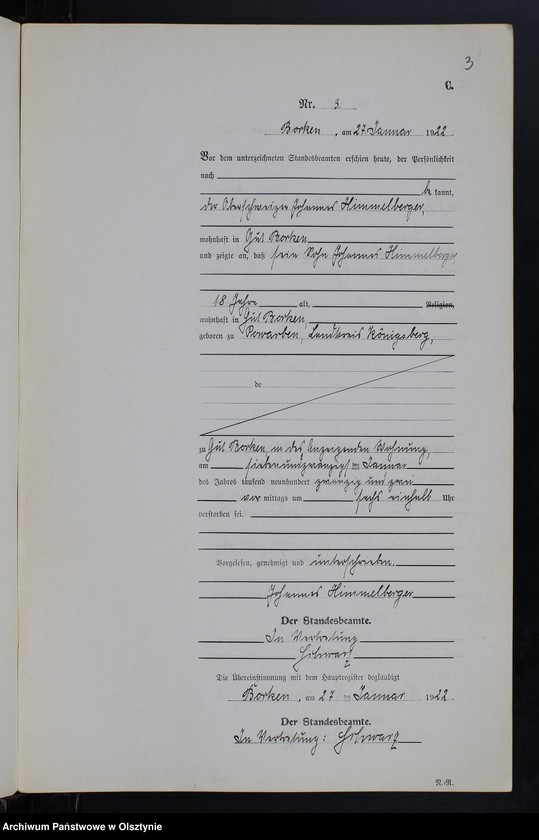 3
C.
Nr. 3.
Borken, am 27. Januar 1922.
Vor dem unterzeichneten Standesbeamten erschien heute, der Persönlichkeit
nach
be kannt,
der Oberschweizer Johannes Himmelberger,
wohnhaft in Gut Borken
und zeigte an, daß sein Sohn Johannes Himmelberger,
18 Jahre alt, Religion,
wohnhaft in Gut Borken,
geboren zu Powarben, Landkreis Königsberg,
de
zu Gut Borken, in des Anzeigenden Wohnung,
am siebenundzwanzigsten Januar
des Jahres tausend neunhundert zwanzig und zwei
vor mittags um sechs einhalb Uhr
verstorben sei.
Vorgelesen, genehmigt und unterschrieben.
Johannes Himmelberger
Der Standesbeamte.
In Vertretung
Schwarz
Die Übereinstimmung mit dem Hauptregister beglaubigt
Borken, am 27 ten Januar 1922.
Der Standesbeamte.
In Vertretung: Schwarz
N.-R.
Archiwum Państwowe w Olsztynie